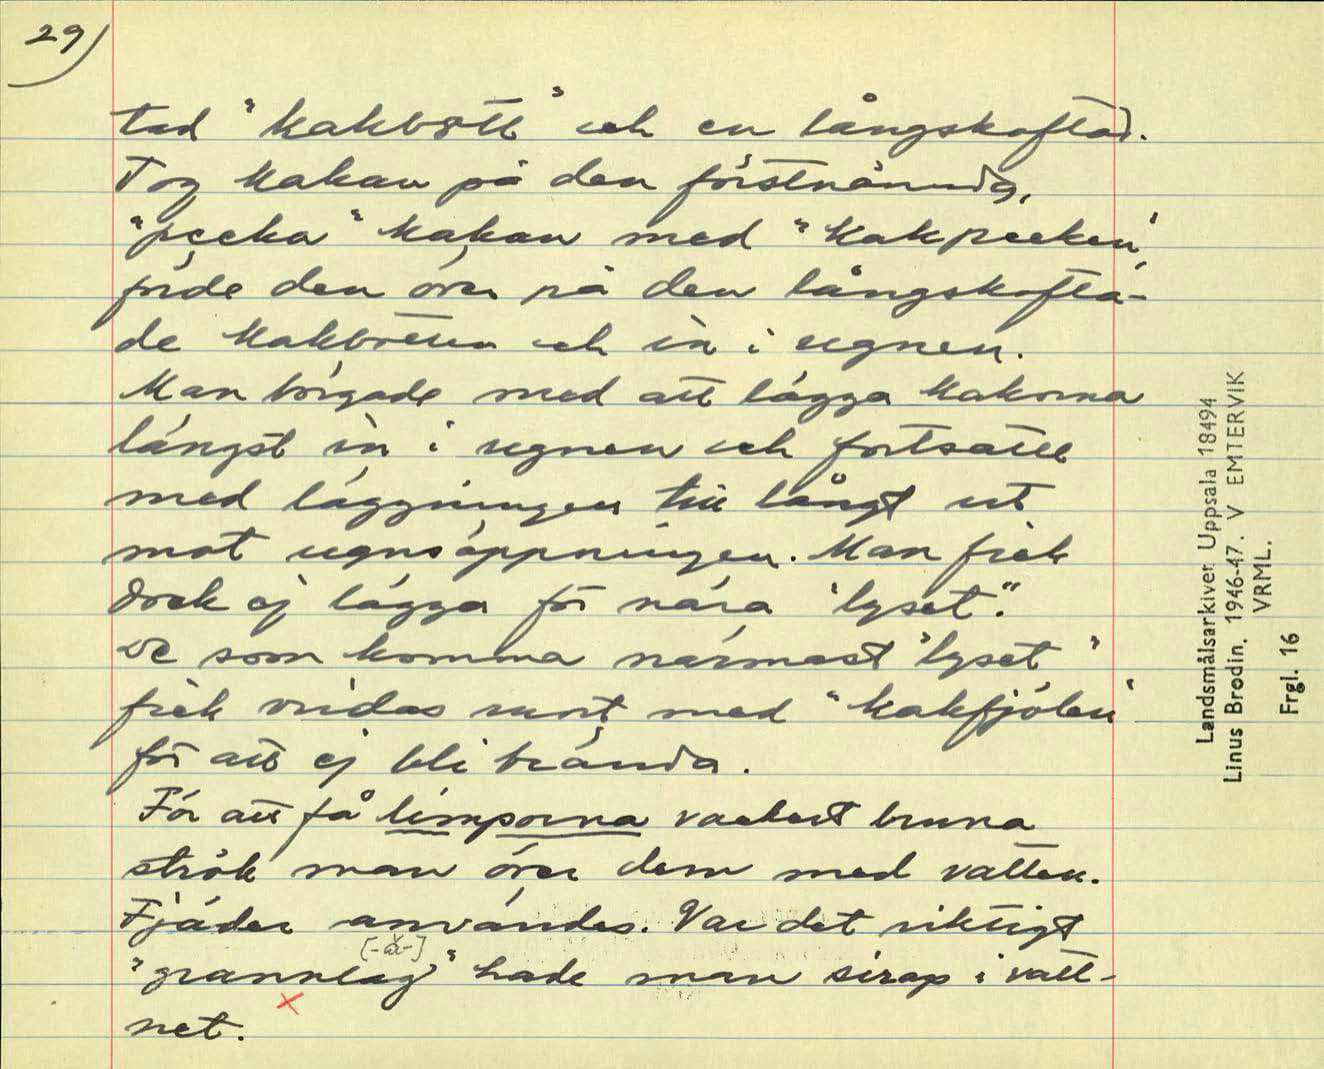 29)
tad "kakbrött" och en långskoftad.
Tog kakan på den förstnämnda,
"pecka" kakan med "kakpecken",
förde den över på den långskofta-
de kakbrötten och in i ugnen.
Man började med att lägga kakorna
längst in i ugnen och fortsatte
med läggningen till långt ut
mot ugnsöppningen. Man fick
dock ej lägga för nära "lyset".
De som komma närmast "lyset"
fick vridas runt med "kakfjölen"
för att ej bli brända.
För att få limporna vackert bruna
strök man över dem med vatten.
Fjäder användes. Var det riktigt
[-ă-]
"grannlag" hade man sirap i vatt-
net.
Landsmålsarkivet, Uppsala 18494
Linus Brodin. 1946-47. V EMTERVIK
VRML.
Frgl. 16